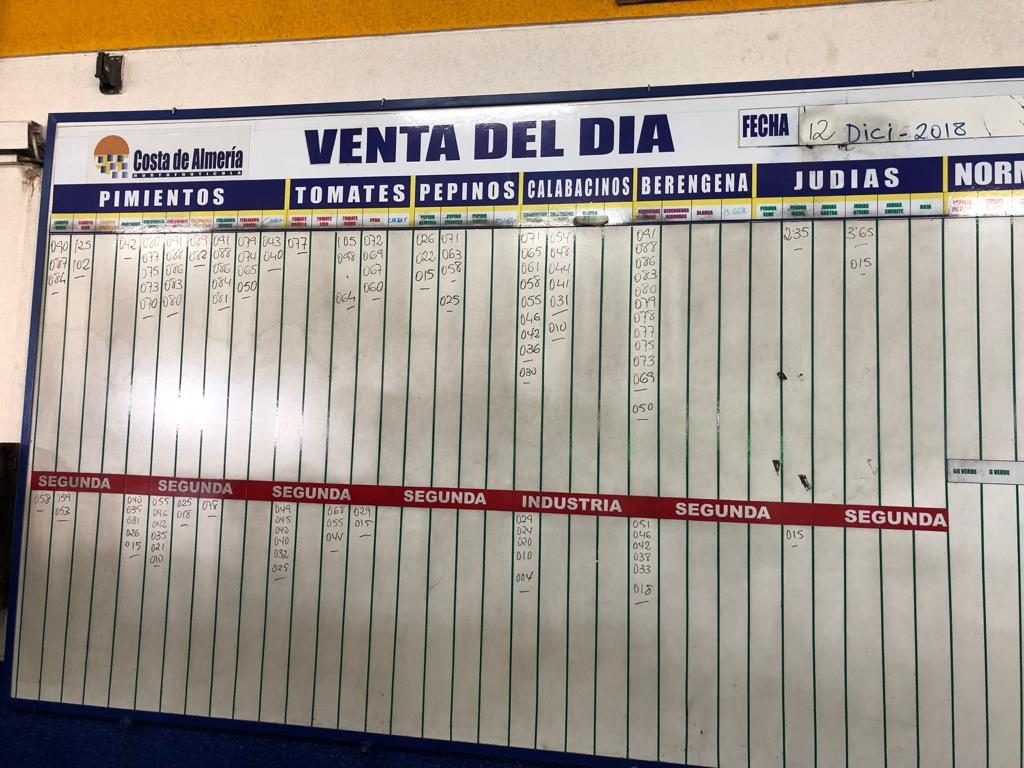 Costa de Almería
HORTOFRUTICOLA
VENTA DEL DIA
FECHA
12 Dici-2018
PIMIENTOS
TOMATES
PEPINOS
CALABACINOS
BERENGENA
JUDIAS
NORM
BLANCA
ROJA
PERA
090 125 042
087 102
084
077
075
073
070
091
088
086
083
080
091
088
086
084
081
079
074
065
050
043
040
077
105
098
064
072
069
067
060
026
022
015
071
063
058
025
071
065
061
058
055
046
042
036
030
054
048
044
041
031
010
091
088
086
083
080
079
078
077
075
073
069
050
2'35
3'65
015
GG VERDE G VERDE
SEGUNDA SEGUNDA SEGUNDA SEGUNDA INDUSTRIA SEGUNDA SEGUNDA
058
053
040
035
026
015
055
046
042
035
021
010
025
018
078
049
045
040
032
025
068
055
044
029
015
029
024
020
010
004
051
046
042
038
033
018
015